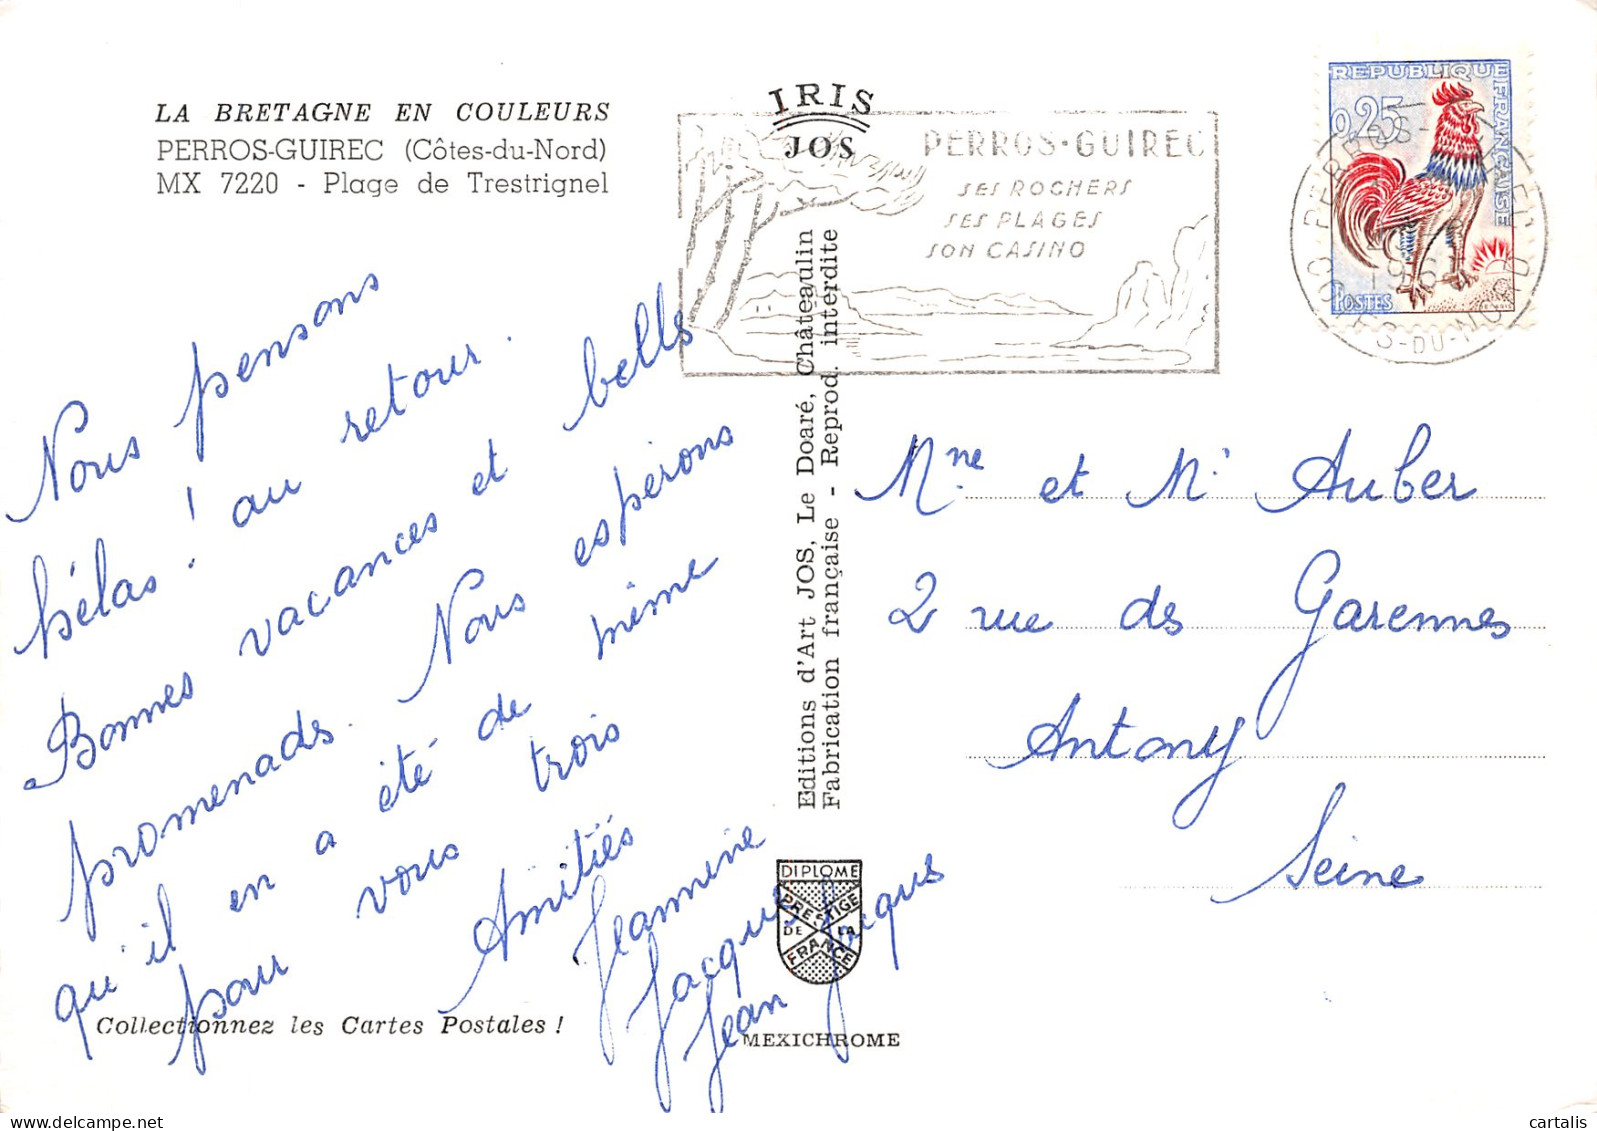 LA BRETAGNE EN COULEURS
PERROS-GUIREC (Côtes-du-Nord)
MX 7220 - Plage de Trestrignel
IRIS
JOS
PERROS-GUIREC
SES ROCHERS
SES PLAGES
SON CASINO
REPUBLIQUE FRANÇAISE
0,25
POSTES
COTES-DU-NORD
Nous pensons
hélas ! au retour.
Bonnes vacances et bells
promenads. Nous esperons
qu'il en a été de même
pour vous trois
Amitiés
Jeannine
Jacques
Jean Jacques
Editions d'Art JOS, Le Doaré, Châteaulin
Fabrication française - Reprod. interdite
Mme et Mr Auber
2 rue des Garennes
Antony
Seine
DIPLOME
PRESTIGE
DE LA
FRANCE
Collectionnez les Cartes Postales !
MEXICHROME
cartalis